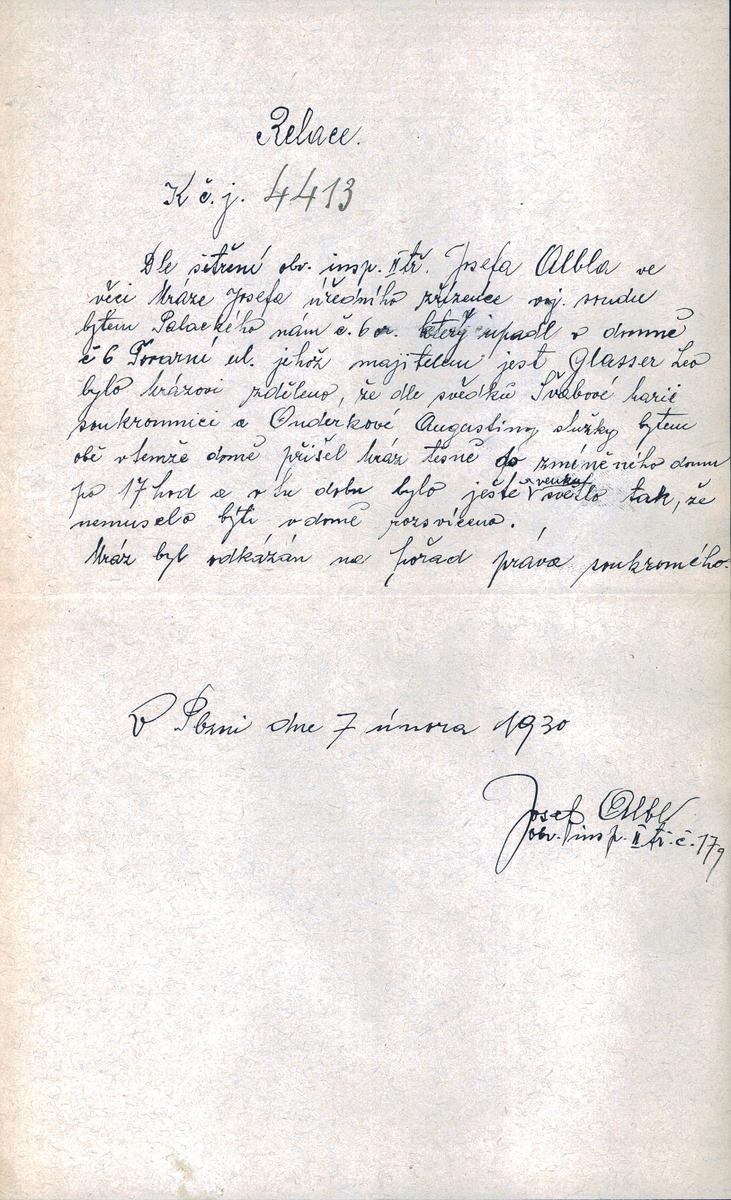 Relace.
K č. j. 4413
Dle šetření obv. insp. II tř. Josefa Albla ve
věci Mráze Josefa úředního zřízence voj. soudu
bytem Palackého nám č. 6 který upadl v domně
č 6 Tovarní ul. jehož majitelem jest Glasser Leo
bylo Mrázovi zděleno, že dle svědků Švábové Marie
soukromnici a Onderkové Augustiny služky bytem
obě v temže domě přišel Mráz tesně do zmíněného domu
po 17 hod a v tu dobu bylo ještě venku světlo tak, že
nemuselo býti v domě rozsvíceno.
Mráz byl odkázán na pořad práva soukromého.
V Plzni dne 7 února 1930
Josef Albl
obv. insp. II tř. č. 179